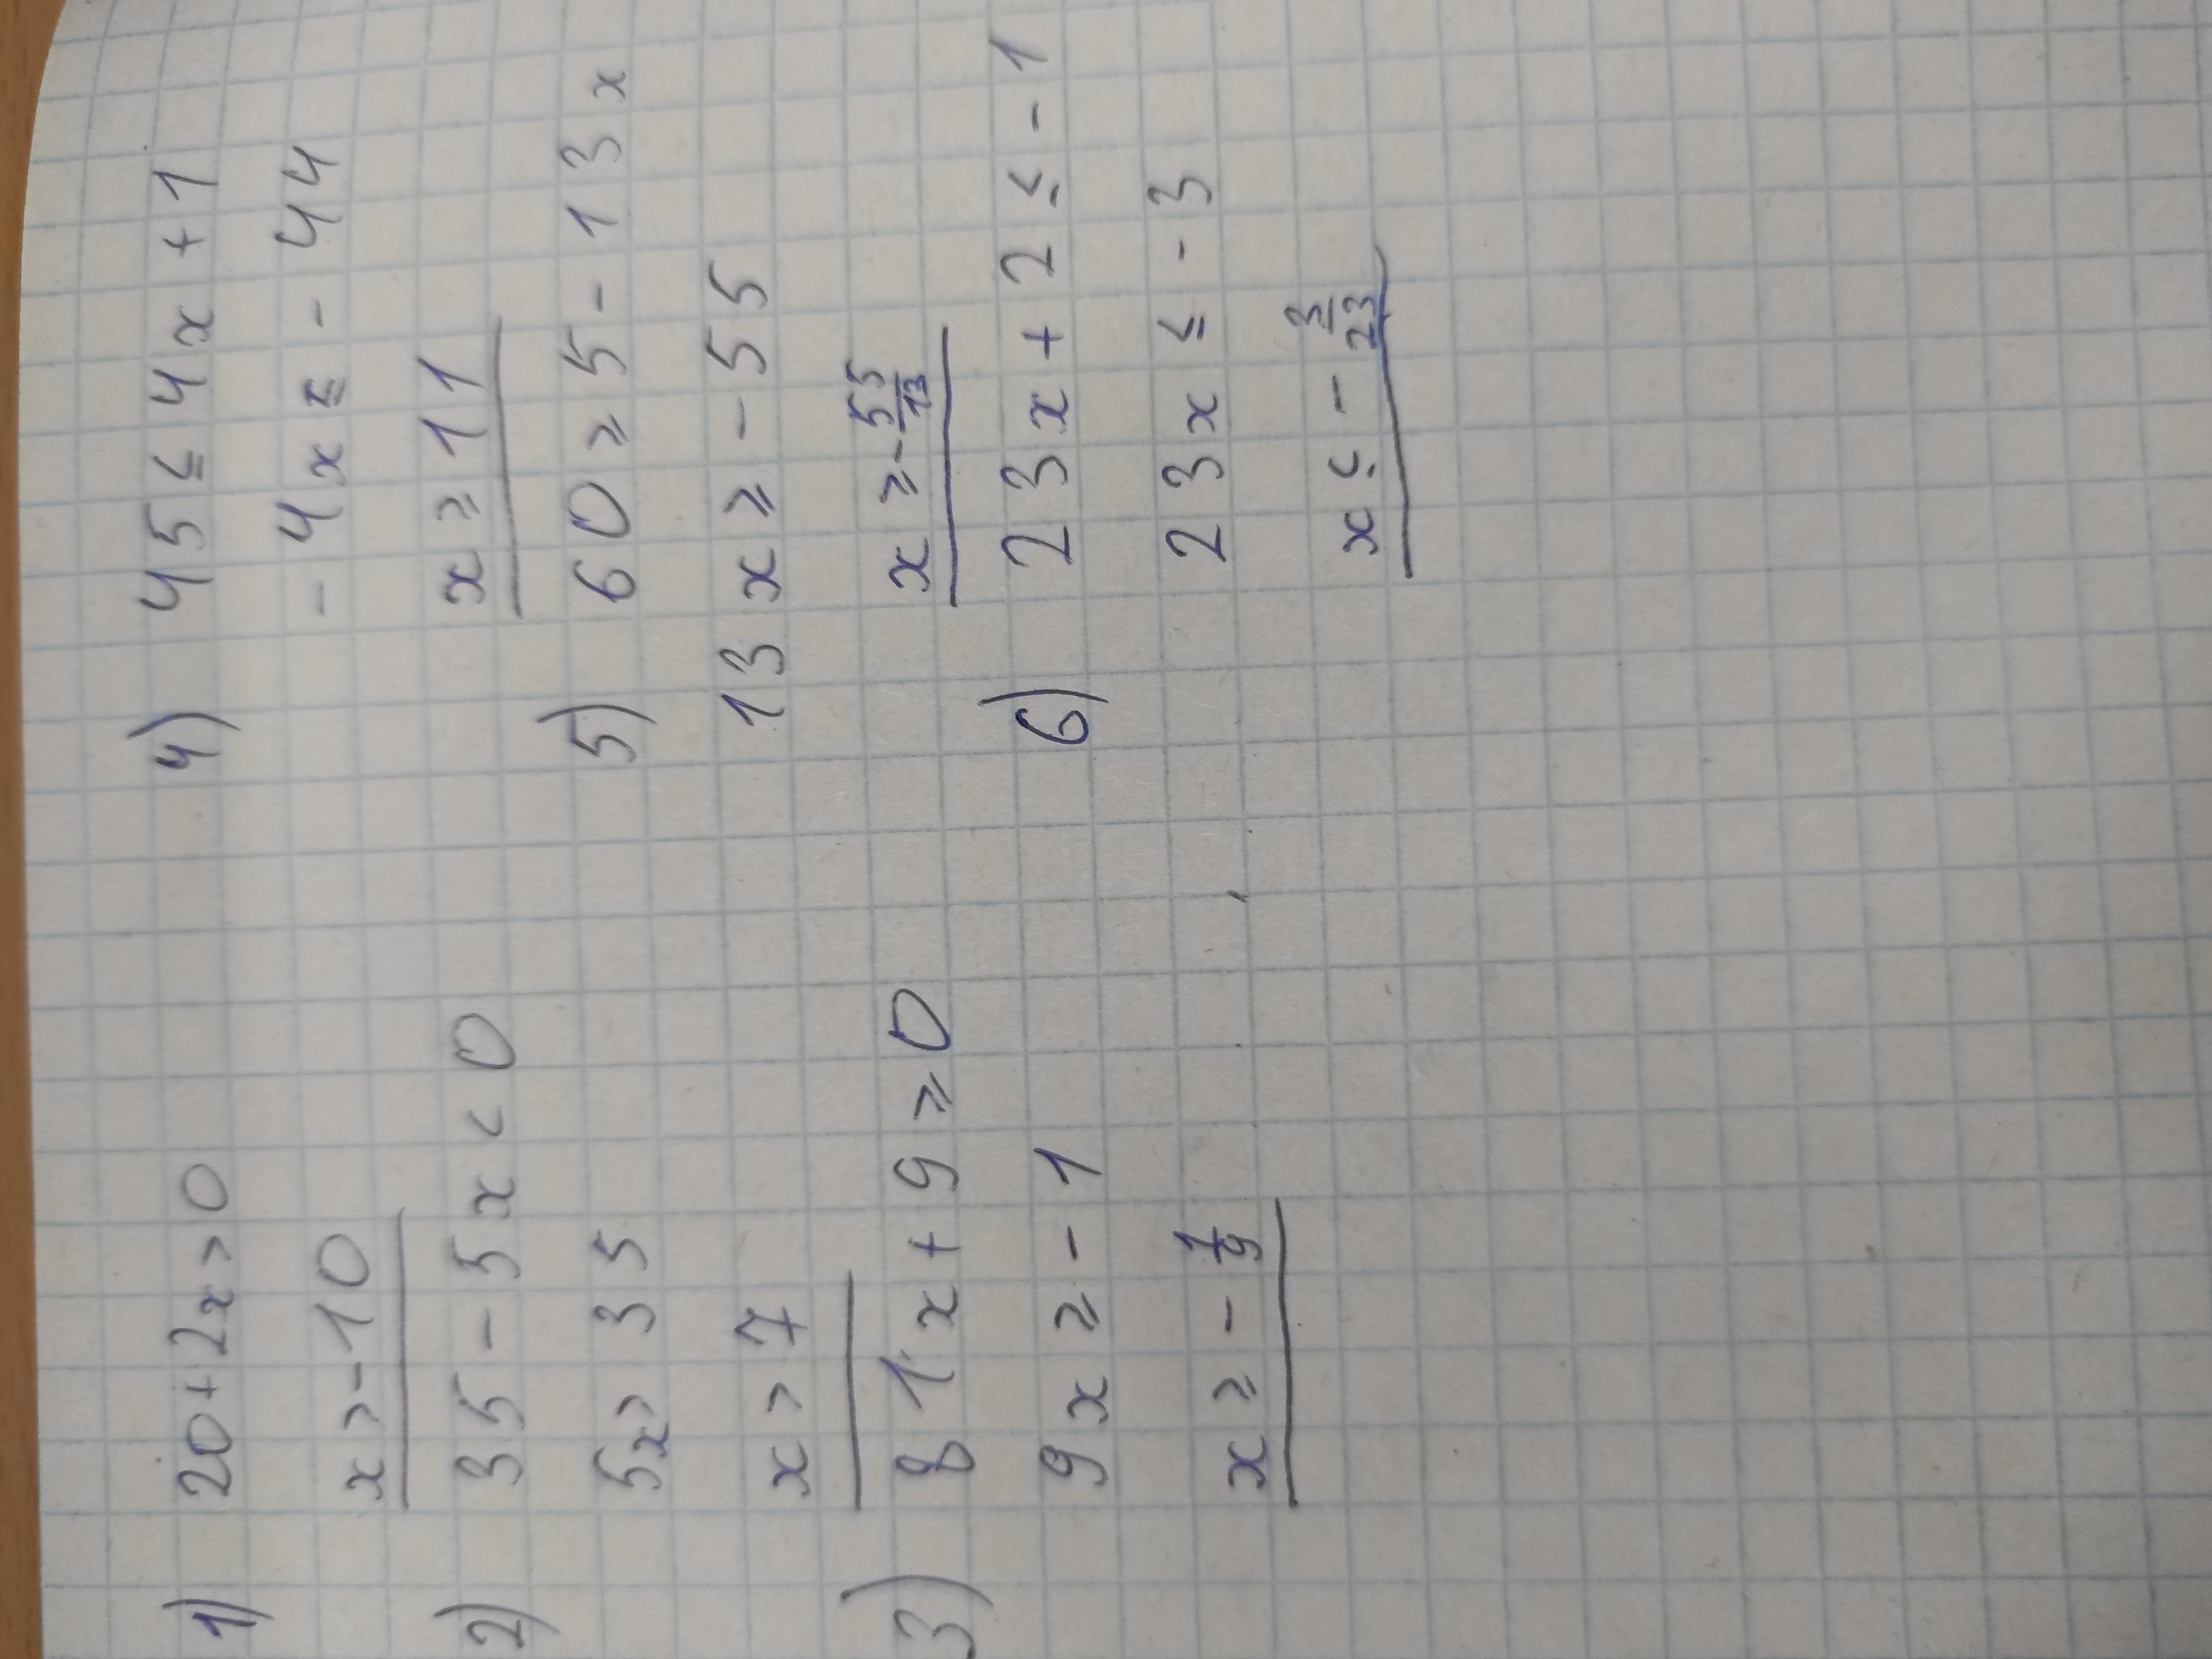 1) 20+2x>0
x>-10
2) 35-5x<0
5x>35
x>7
3) 81x+9≥0
9x≥-1
x≥-1/9
4) 45≤4x+1
-4x≤-44
x≥11
5) 60≥5-13x
13x≥-55
x≥-55/13
6) 23x+2≤-1
23x≤-3
x≤-3/23